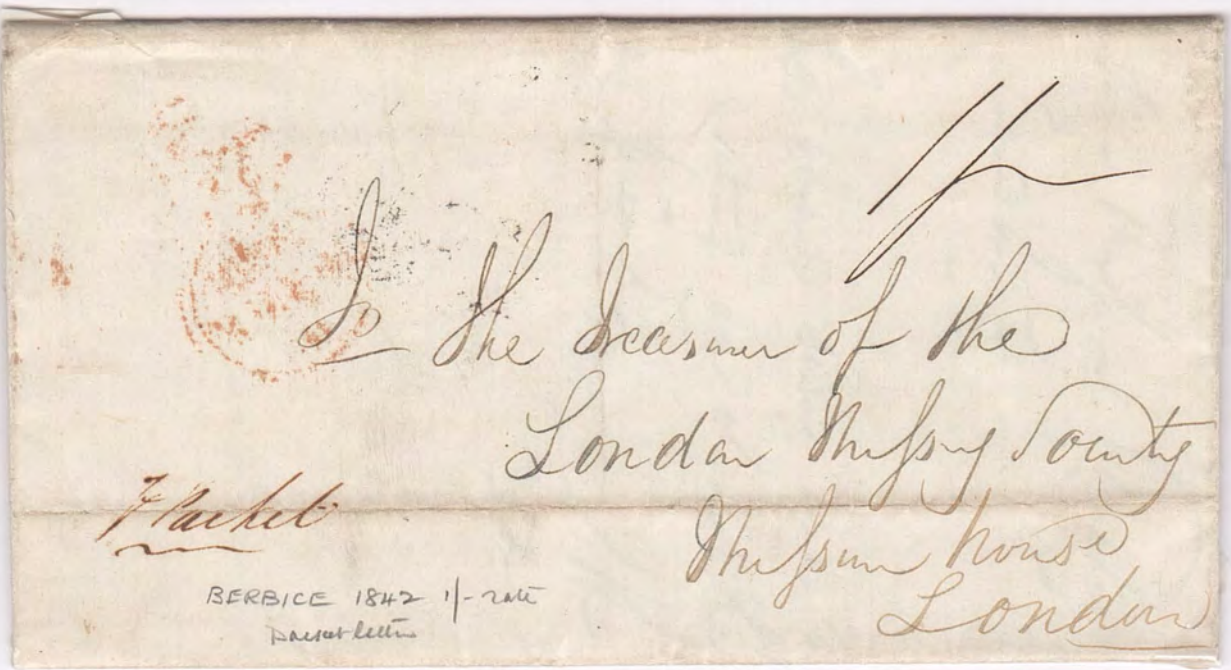 1/-
To the Treasurer of the
London Missy Society
Mission house
London
Packet
BERBICE 1842 1/- rate
packet letter